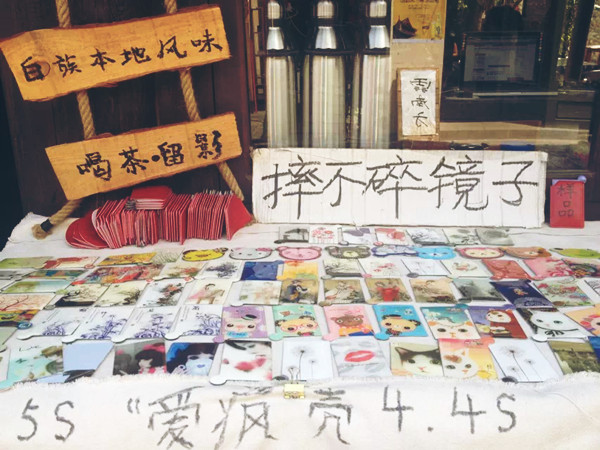 白族本地风味
喝茶·留影
摔不碎镜子
样品
5S "爱疯壳 4.4S